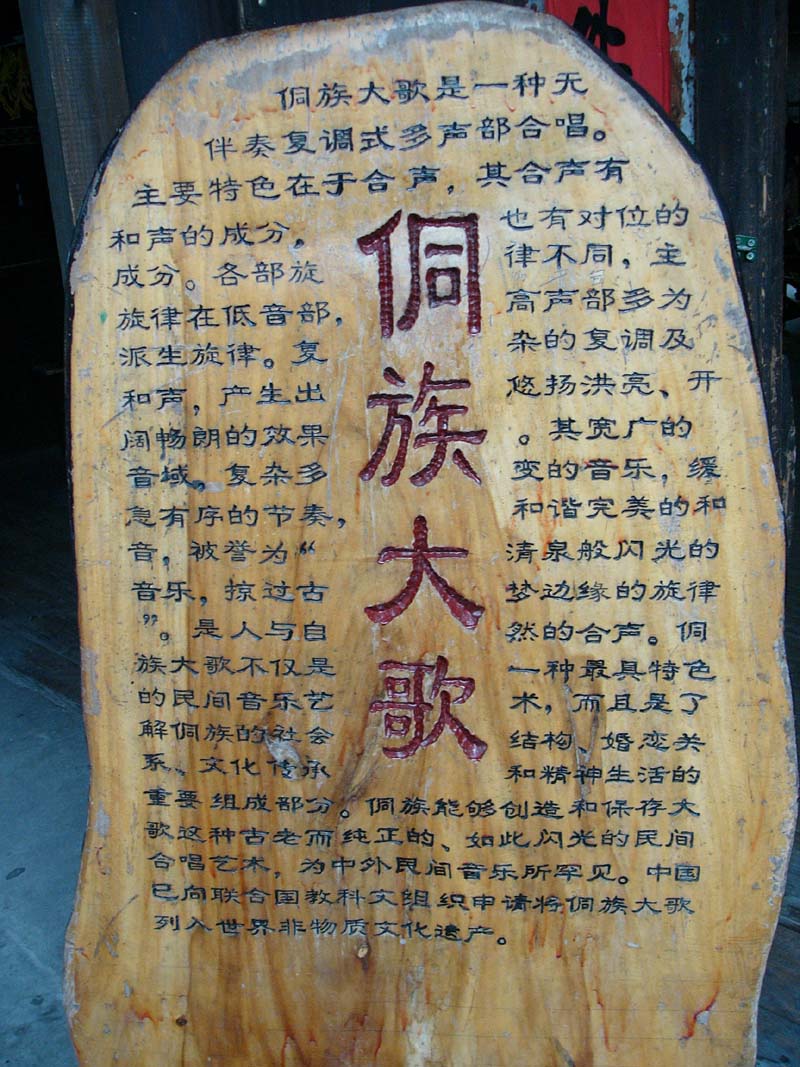 侗族大歌
侗族大歌是一种无
伴奏复调式多声部合唱。
主要特色在于合声，其合声有
和声的成分，也有对位的
成分。各部旋律不同，主
旋律在低音部，高声部多为
派生旋律。复杂的复调及
和声，产生出悠扬洪亮、开
阔畅朗的效果。其宽广的
音域，复杂多变的音乐，缓
急有序的节奏，和谐完美的和
音，被誉为“清泉般闪光的
音乐，掠过古梦边缘的旋律
”。是人与自然的合声。侗
族大歌不仅是一种最具特色
的民间音乐艺术，而且是了
解侗族的社会结构、婚恋关
系、文化传承和精神生活的
重要组成部分。侗族能够创造和保存大
歌这种古老而纯正的、如此闪光的民间
合唱艺术，为中外民间音乐所罕见。中国
已向联合国教科文组织申请将侗族大歌
列入世界非物质文化遗产。